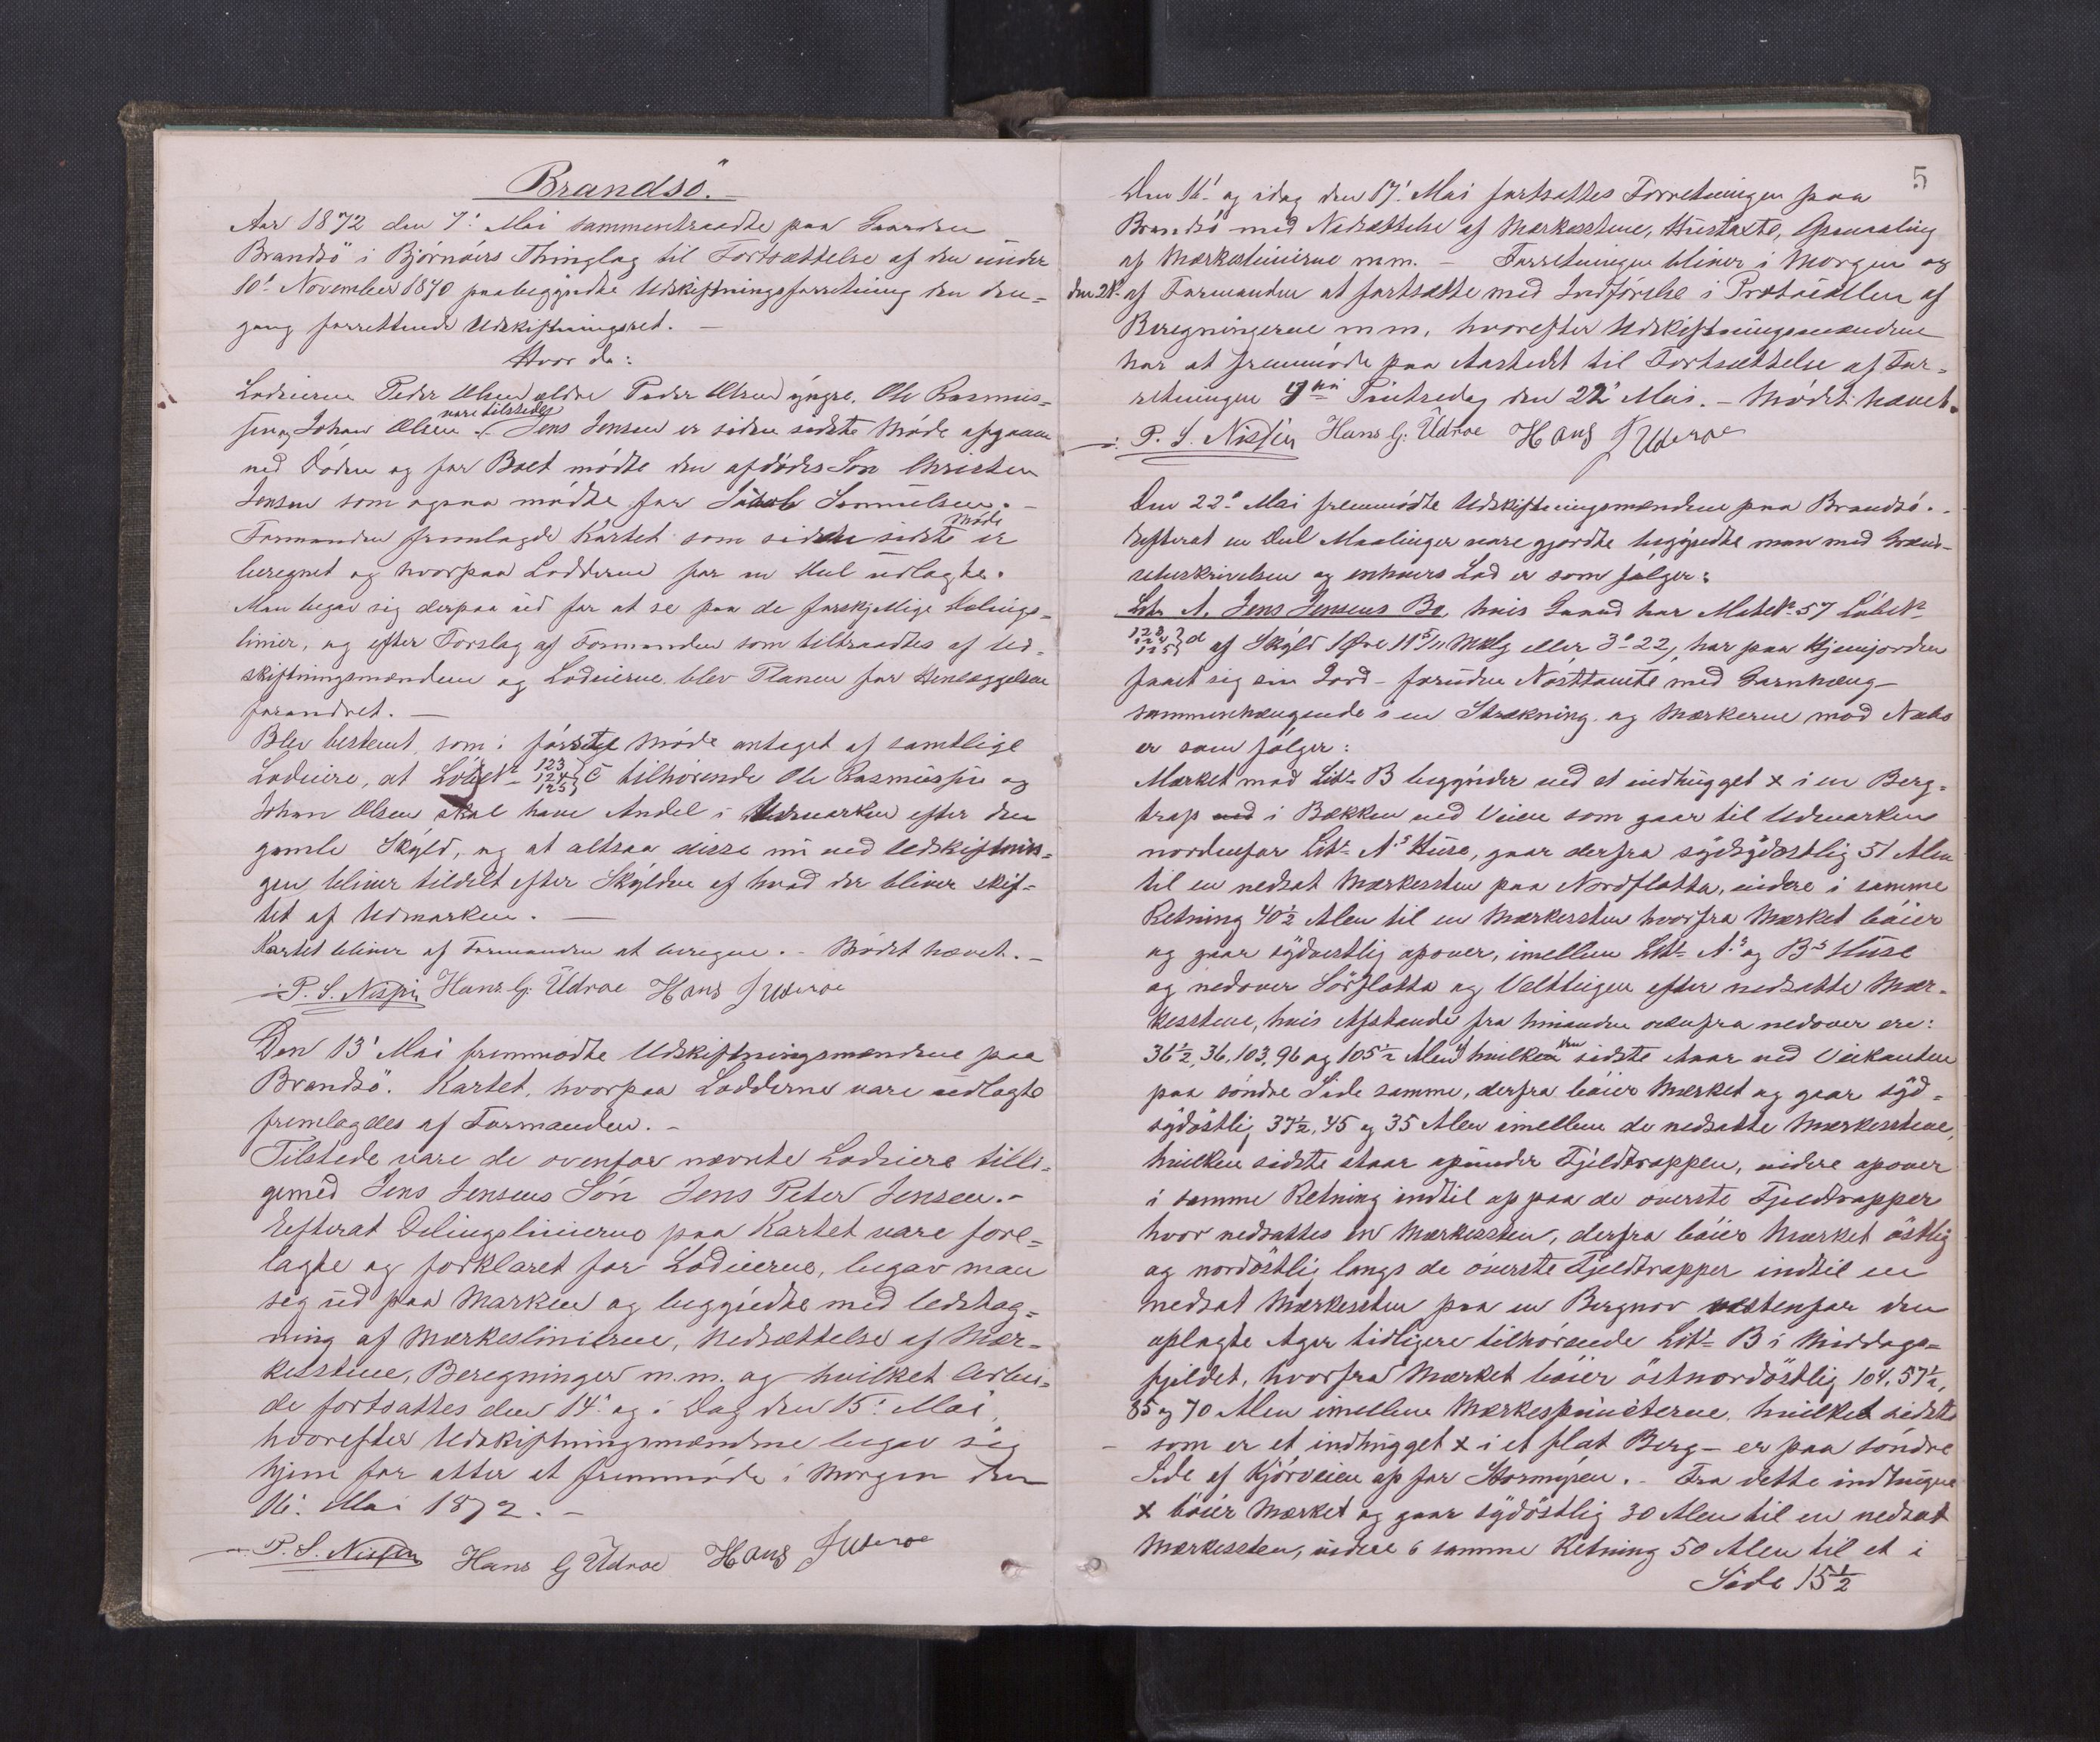 Brandsö.
Aar 1872 den 7' Mai sammentraadte paa Gaarden
Brandsö i Bjørnøers Thinglag til Fortsættelse af den under
10' November 1870 paabegyndte Udskiftningsforretning den den-
gang forrettende Udskiftningsret. –
Hvor da:
Lodeierne Peder Olsen ældre Peder Olsen yngre, Ole Rasmus-
sen og Johan Olsen vare tilstedes. Jens Jensen er siden sidste Møde afgaaen
ved Døden og for Boet mødte den afdødes Søn Christen
Jensen som ogsaa mødte for Jakob Samuelsen. –
Formanden fremlagde Kartet som siden sidste Møde er
beregnet og hvorpaa Lodderne for en Deel udlagte.
Man begav sig derpaa ud for at se paa de forskjellige Delings-
linier, og efter Forslag af Formanden som tiltraadtes af Ud-
skiftningsmændene og Lodeierne blev Planen for Henlæggelsen
forandret. –
Blev bestemt, som i første Møde antaget af samtlige
Lodeiere, at LøbeNr 123 124 125 } c tilhørende Ole Rasmussen og
Johan Olsen skal have Andel i Udmarken efter den
gamle Skyld, og at altsaa disse nu ved Udskiftnin-
gen bliver tildelt efter Skylden af hvad der bliver skif-
tet af Udmarken. –
Kartet bliver af Formanden at beregne. – Mødet hævet. –
P. S. Nissen Hans G. Udroe Hans J Uderoe
Den 13' Mai fremmødte Udskiftningsmændene paa
Brandsö. Kartet, hvorpaa Lodderne vare udlagte
fremlagdes af Formanden. –
Tilstede vare de ovenfor nævnte Lodeiere tilli-
gemed Jens Jensens Søn Jens Peter Jensen. –
Efterat Delingslinierne paa Kartet vare fore-
lagte og forklaret for Lodeierne, begav man
sig ud paa Marken og begyndte med Udstag-
ning af Mærkeslinierne, Nedsættelse af Mær-
kesstene, Beregninger m.m. og hvilket Arbei-
de fortsattes den 14' og i Dag den 15' Mai,
hvorefter Udskiftningsmændene begav sig
hjem for atter at fremmøde i Morgen den
16' Mai 1872. –
P. S. Nissen Hans G Udroe Hans J Uderoe
5
Den 16' og idag den 17' Mai fortsattes Forretningen paa
Brandsö med Nedsættelse af Mærkesstene, Hustaxte, Opmaaling
af Mærkeslinierne m.m. – Forretningen bliver i Morgen og
den 21' af Formanden at fortsætte med Indførelse i Protocollen af
Beregningerne m m, hvorefter Udskiftningsmændene
har at fremmøde paa Aastedet til Fortsættelse af For-
retningen Pintsedag den 22' Mai. – Mødet hævet.
P. S. Nissen Hans G. Udroe Hans J Uderoe
Den 22' Mai fremmødte Udskiftningsmændene paa Brandsö. –
Efterat en Deel Maalinger vare gjordte begyndte man med Grænd-
sebeskrivelsen og enhvers Lod er som følger:
Litr A. Jens Jensens Bo, hvis Gaard har MatrNr 57 LøbeNr
123 124 125 } d af Skyld 1 Øre 11 5/11 Mklg eller 3-22, har paa Hjemjorden
faaet sig en Jord – foruden Nösttomte med Garnhæng –
sammenhængende i en Strækning og Mærkerne mod Nabo
er som følger:
Mærket mod Litr B begynder ved et indhugget x i en Berg-
trap i Bækken ved Veien som gaar til Udmarken
nordenfor Litr A's Huse, gaar derfra sydsydøstlig 51 Alen
til en nedsat Mærkessten paa Nordflotta, videre i samme
Retning 40½ Alen til en Mærkessten hvorfra Mærket bøier
og gaar sydvestlig opover, imellem Litr A's og B's Huse
og nedover Sörflotta og Veltteigen efter nedsatte Mær-
kesstene, hvis Afstande fra hinanden ovenfra nedover ere:
36½, 36, 103, 96 og 105½ Alen, hvilken den sidste staar ved Veikanten
paa søndre Side samme, derfra bøier Mærket og gaar syd-
sydøstlig 37½, 45 og 35 Alen imellem de nedsatte Mærkesstene,
hvilken sidste staar opunder Fjeldtrappen, videre opover
i samme Retning indtil op paa de øverste Fjeldtrapper
hvor nedsattes en Mærkessten, derfra bøier Mærket østlig
og nordøstlig langs de øverste Fjeldtrapper indtil en
nedsat Mærkessten paa en Bergnov vestenfor den
oplagte Ager tidligere tilhørende Litr B i Middags-
fjeldet, hvorfra Mærket bøier østnordøstlig 104, 57½,
85 og 70 Alen imellem Mærkespuncterne, hvilket sidste
– som er et indhugget x i et flat Berg – er paa søndre
Side af Kjørveien op for Stormyren. – Fra dette indhugne
x bøier Mærket og gaar sydøstlig 30 Alen til en nedsat
Mærkessten, videre i samme Retning 50 Alen til et i
Side 15½